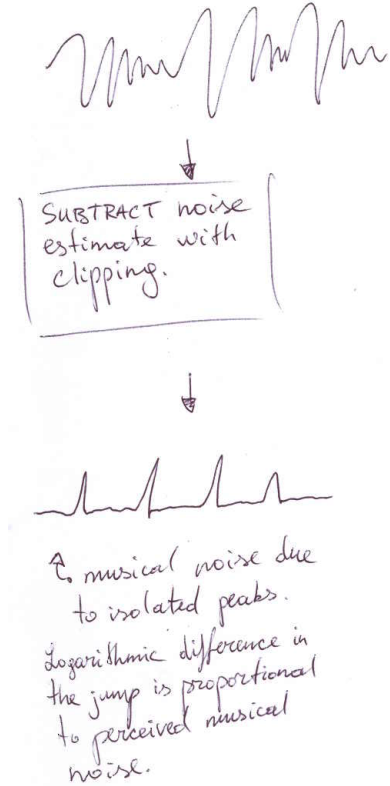 SUBTRACT noise
estimate with
clipping.
musical noise due
to isolated peaks.
Logarithmic difference in
the jump is proportional
to perceived musical
noise.